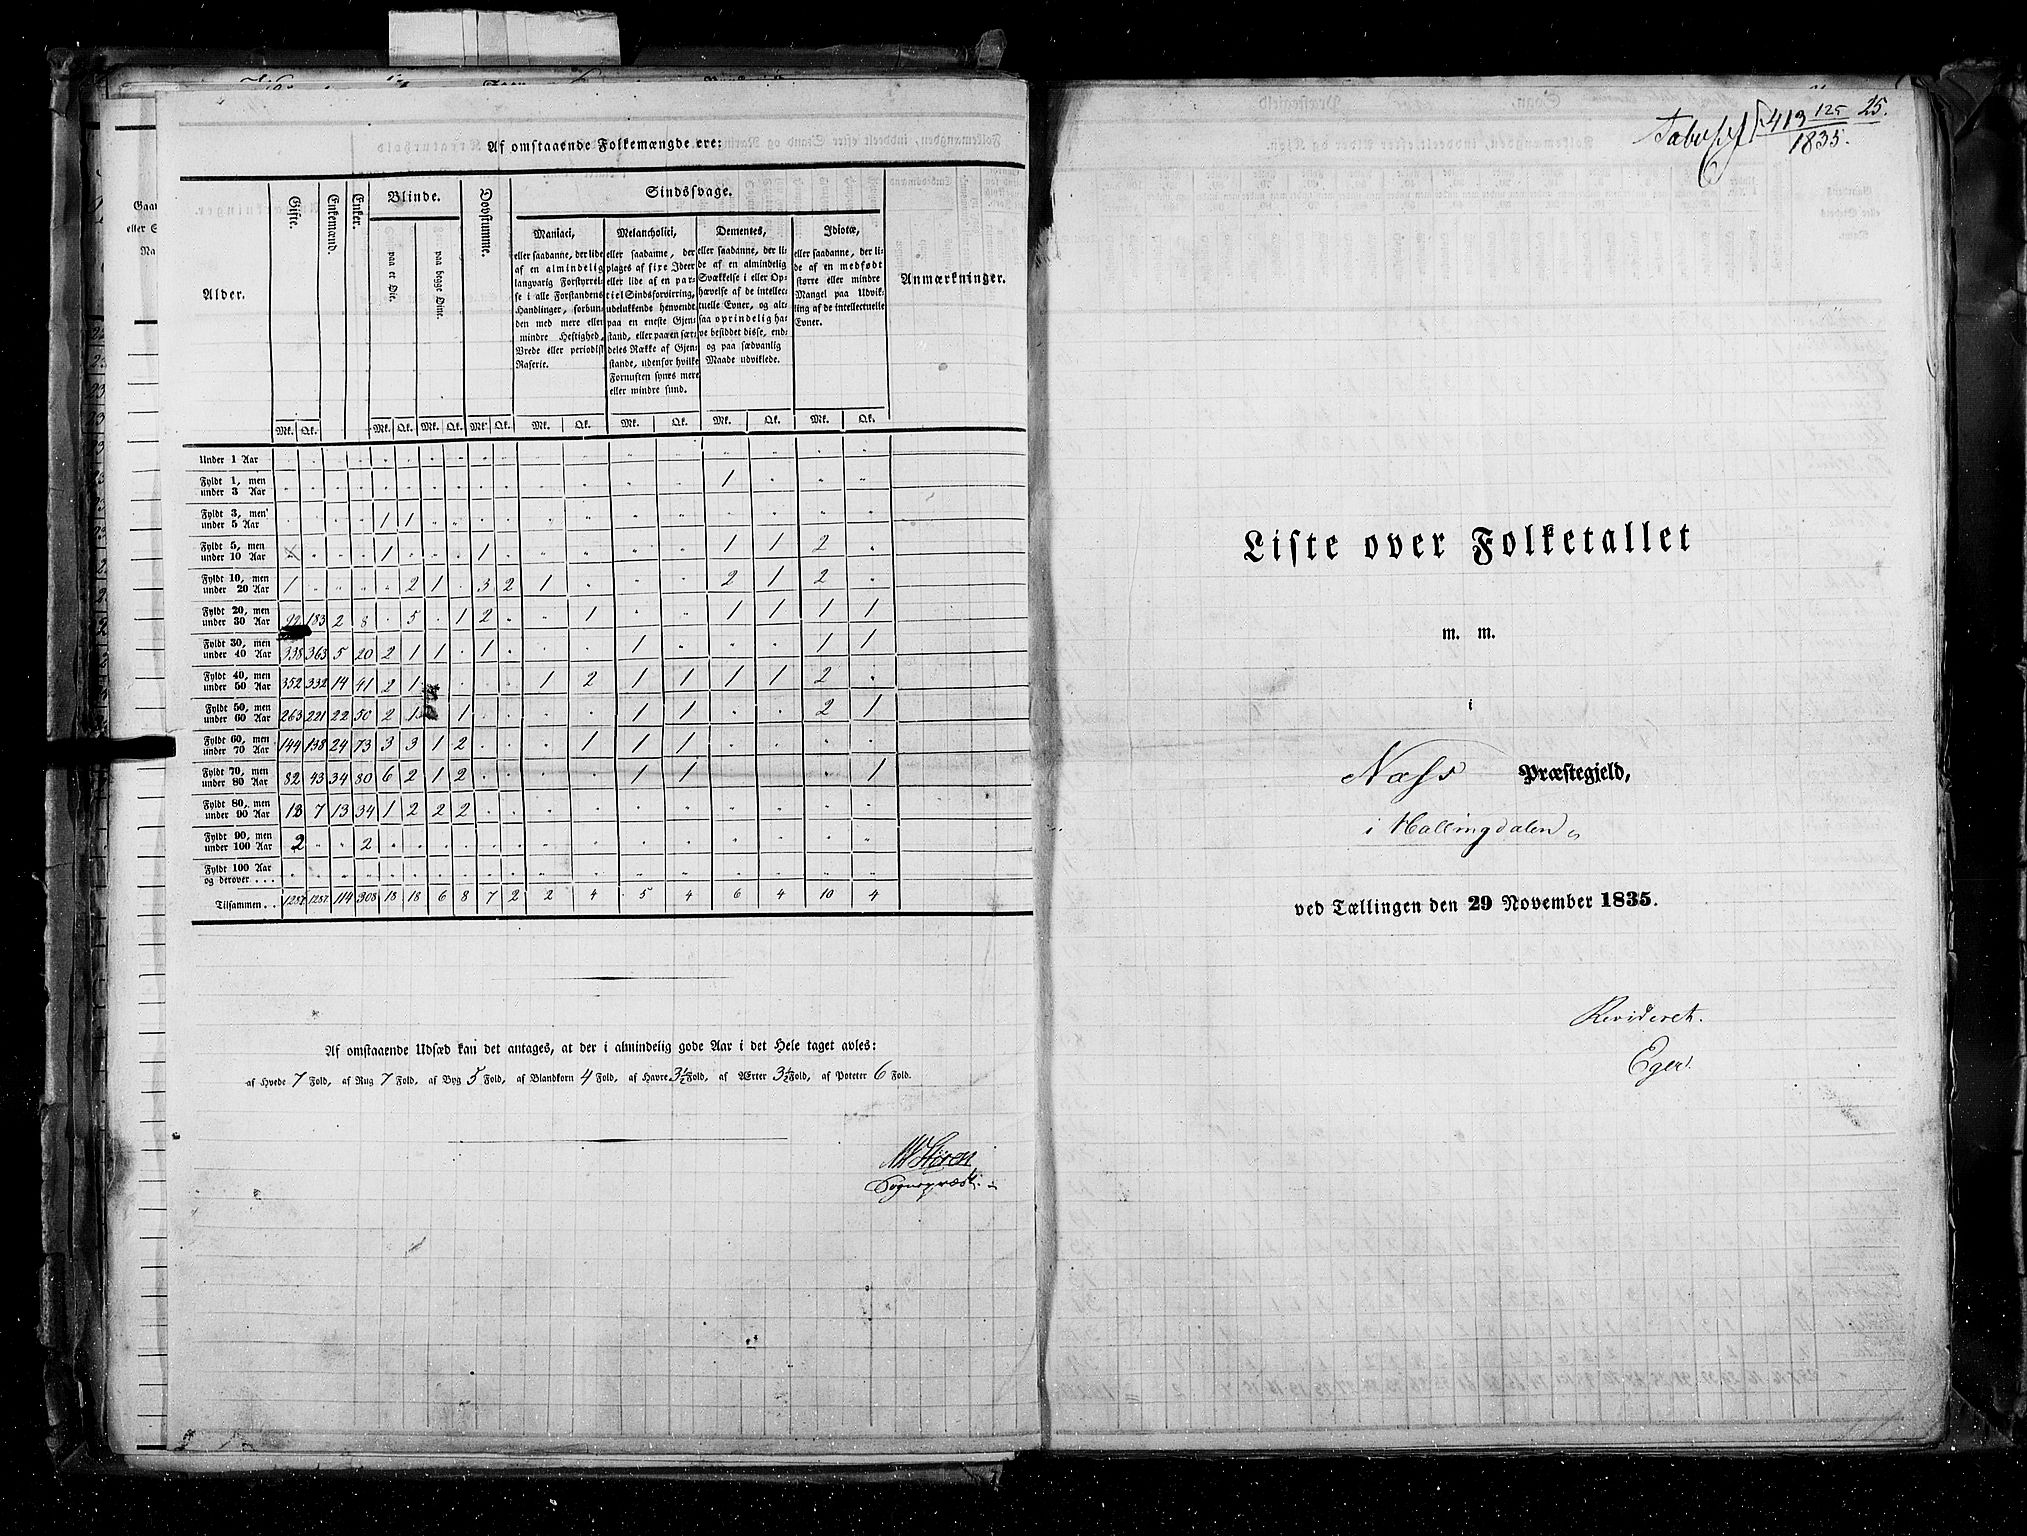 Af omstaaende Folkemængde ere:
Alder.
Gifte.
Enkemænd.
Enker.
Blinde.
paa et Øie.
paa begge Øine.
Døvstumme.
Sindssvage.
Maniaci,
eller saadanne, der lide
af en almindelig
langvarig Forstyrrel-
se i alle Forstandens
Handlinger, forbun-
den med mere eller
mindre Heftighed,
Vrede eller periodisk
Raserie.
Melancholici,
eller saadanne, der
plages af fixe Ideer
eller lide af en par-
tiel Sindsforvirring,
udelukkende henvendt
paa en eneste Gjen-
stand, eller paa en sær-
deles Række af Gjen-
stande, udenfor hvilke
Fornuften synes mere
eller mindre sund.
Dementes,
eller saadanne, der li-
de af en almindelig
Svækkelse i eller Op-
hævelse af de intellec-
tuelle Evner, og alt-
saa oprindelig ha-
ve besiddet disse, end-
og paa sædvanlig
Maade udviklede.
Idiotæ,
eller saadanne, der li-
de af en medfødt
større eller mindre
Mangel paa Udvik-
ling af de intellectuelle
Evner.
Anmærkninger.
Mk. Qk. Mk. Qk. Mk. Qk. Mk. Qk. Mk. Qk. Mk. Qk. Mk. Qk. Mk. Qk.
Under 1 Aar
Fyldt 1, men under 3 Aar 1
Fyldt 3, men under 5 Aar 1 1
Fyldt 5, men under 10 Aar 1 1 1 1 2
Fyldt 10, men under 20 Aar 1 2 1 3 2 1 2 1 2
Fyldt 20, men under 30 Aar 92 183 2 8 5 1 2 1 1 1 1 1
Fyldt 30, men under 40 Aar 338 363 5 20 2 1 1 1 1 1 1
Fyldt 40, men under 50 Aar 352 332 14 41 2 1 1 2 1 1 1 1 2
Fyldt 50, men under 60 Aar 263 221 22 50 2 1 1 1 1 2 1
Fyldt 60, men under 70 Aar 144 138 24 73 3 3 1 2 1 1 1
Fyldt 70, men under 80 Aar 82 43 34 80 6 2 1 2 1 1 1
Fyldt 80, men under 90 Aar 13 7 13 34 1 2 2 2
Fyldt 90, men under 100 Aar 2 2
Fyldt 100 Aar og derover . . .
Tilsammen . . 1287 1287 114 308 18 18 6 8 7 2 2 4 5 4 6 4 10 4
Af omstaaende Udsæd kan det antages, at der i almindelig gode Aar i det Hele taget avles:
af Hvede 7 Fold, af Rug 7 Fold, af Byg 5 Fold, af Blandkorn 4 Fold, af Havre 3½ Fold, af Ærter 3½ Fold, af Poteter 6 Fold.
Støren
Sognepræst.
413 125 25.
1835.
Liste over Folketallet
m. m.
i
Næss Præstegjeld,
i Hallingdalen
ved Tællingen den 29 November 1835.
Revideret.
Eger.